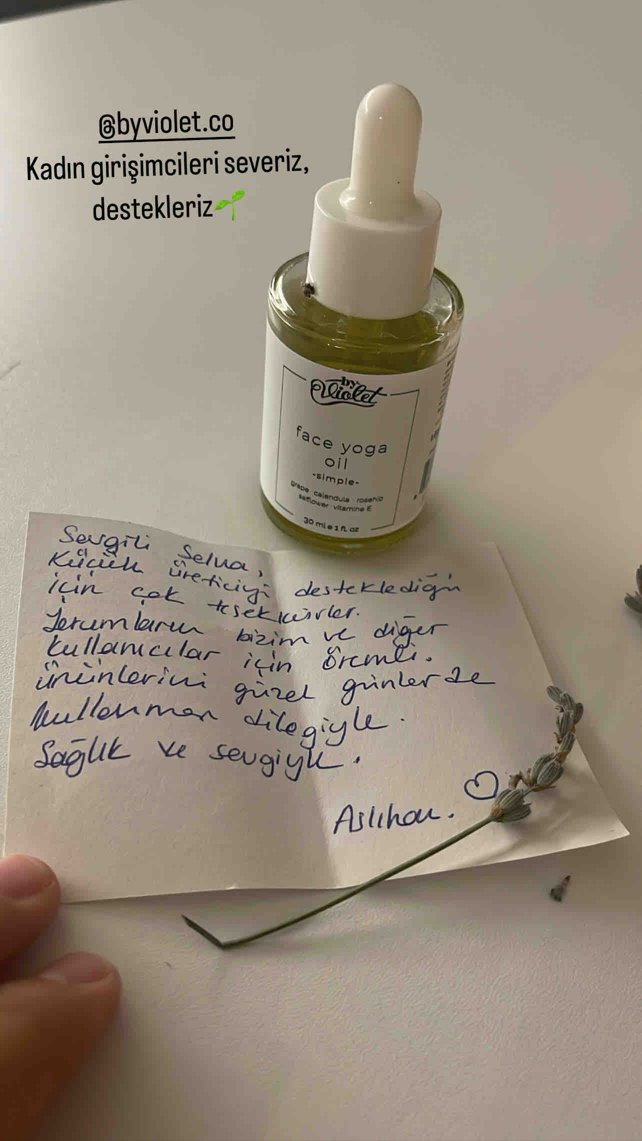 @byviolet.co
Kadın girişimcileri severiz,
destekleriz🌱
by
Violet
face yoga
oil
-simple-
grape calendula rosehip
safflower vitamine E
30 ml e 1 fl. oz
Sevgili Selva,
Küçük üreticiyi desteklediğin
için çok teşekkürler.
Yorumların bizim ve diğer
kullanıcılar için önemli.
Ürünlerini güzel günlerde
kullanman dileğiyle.
Sağlık ve sevgiyle.
Aslıhan.